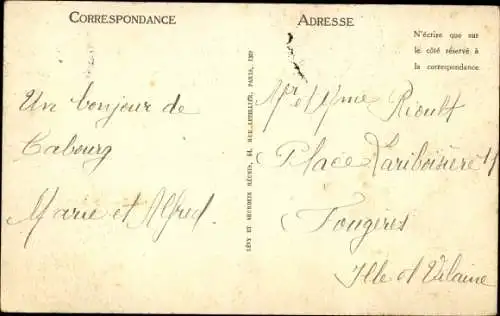 CORRESPONDANCE
Un bonjour de
Cabourg
Marie et Alfred.
LÉVY ET NEURDEIN RÉUNIS, 44, RUE LETELLIER, PARIS, IMP
ADRESSE
N'écrire que sur
le côté réservé à
la correspondance
Mr et Mme Rioult
Place Lariboisière
Fougères
Ille et Vilaine